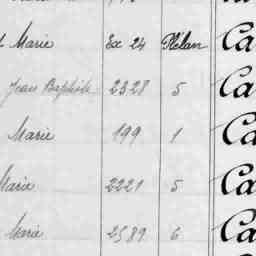 Marie Ex 24 Plélan Ca
Jean Baptiste 2328 5 Ca
Marie 199 1 Ca
Marie 2221 5 Ca
Marie 2589 6 Ca